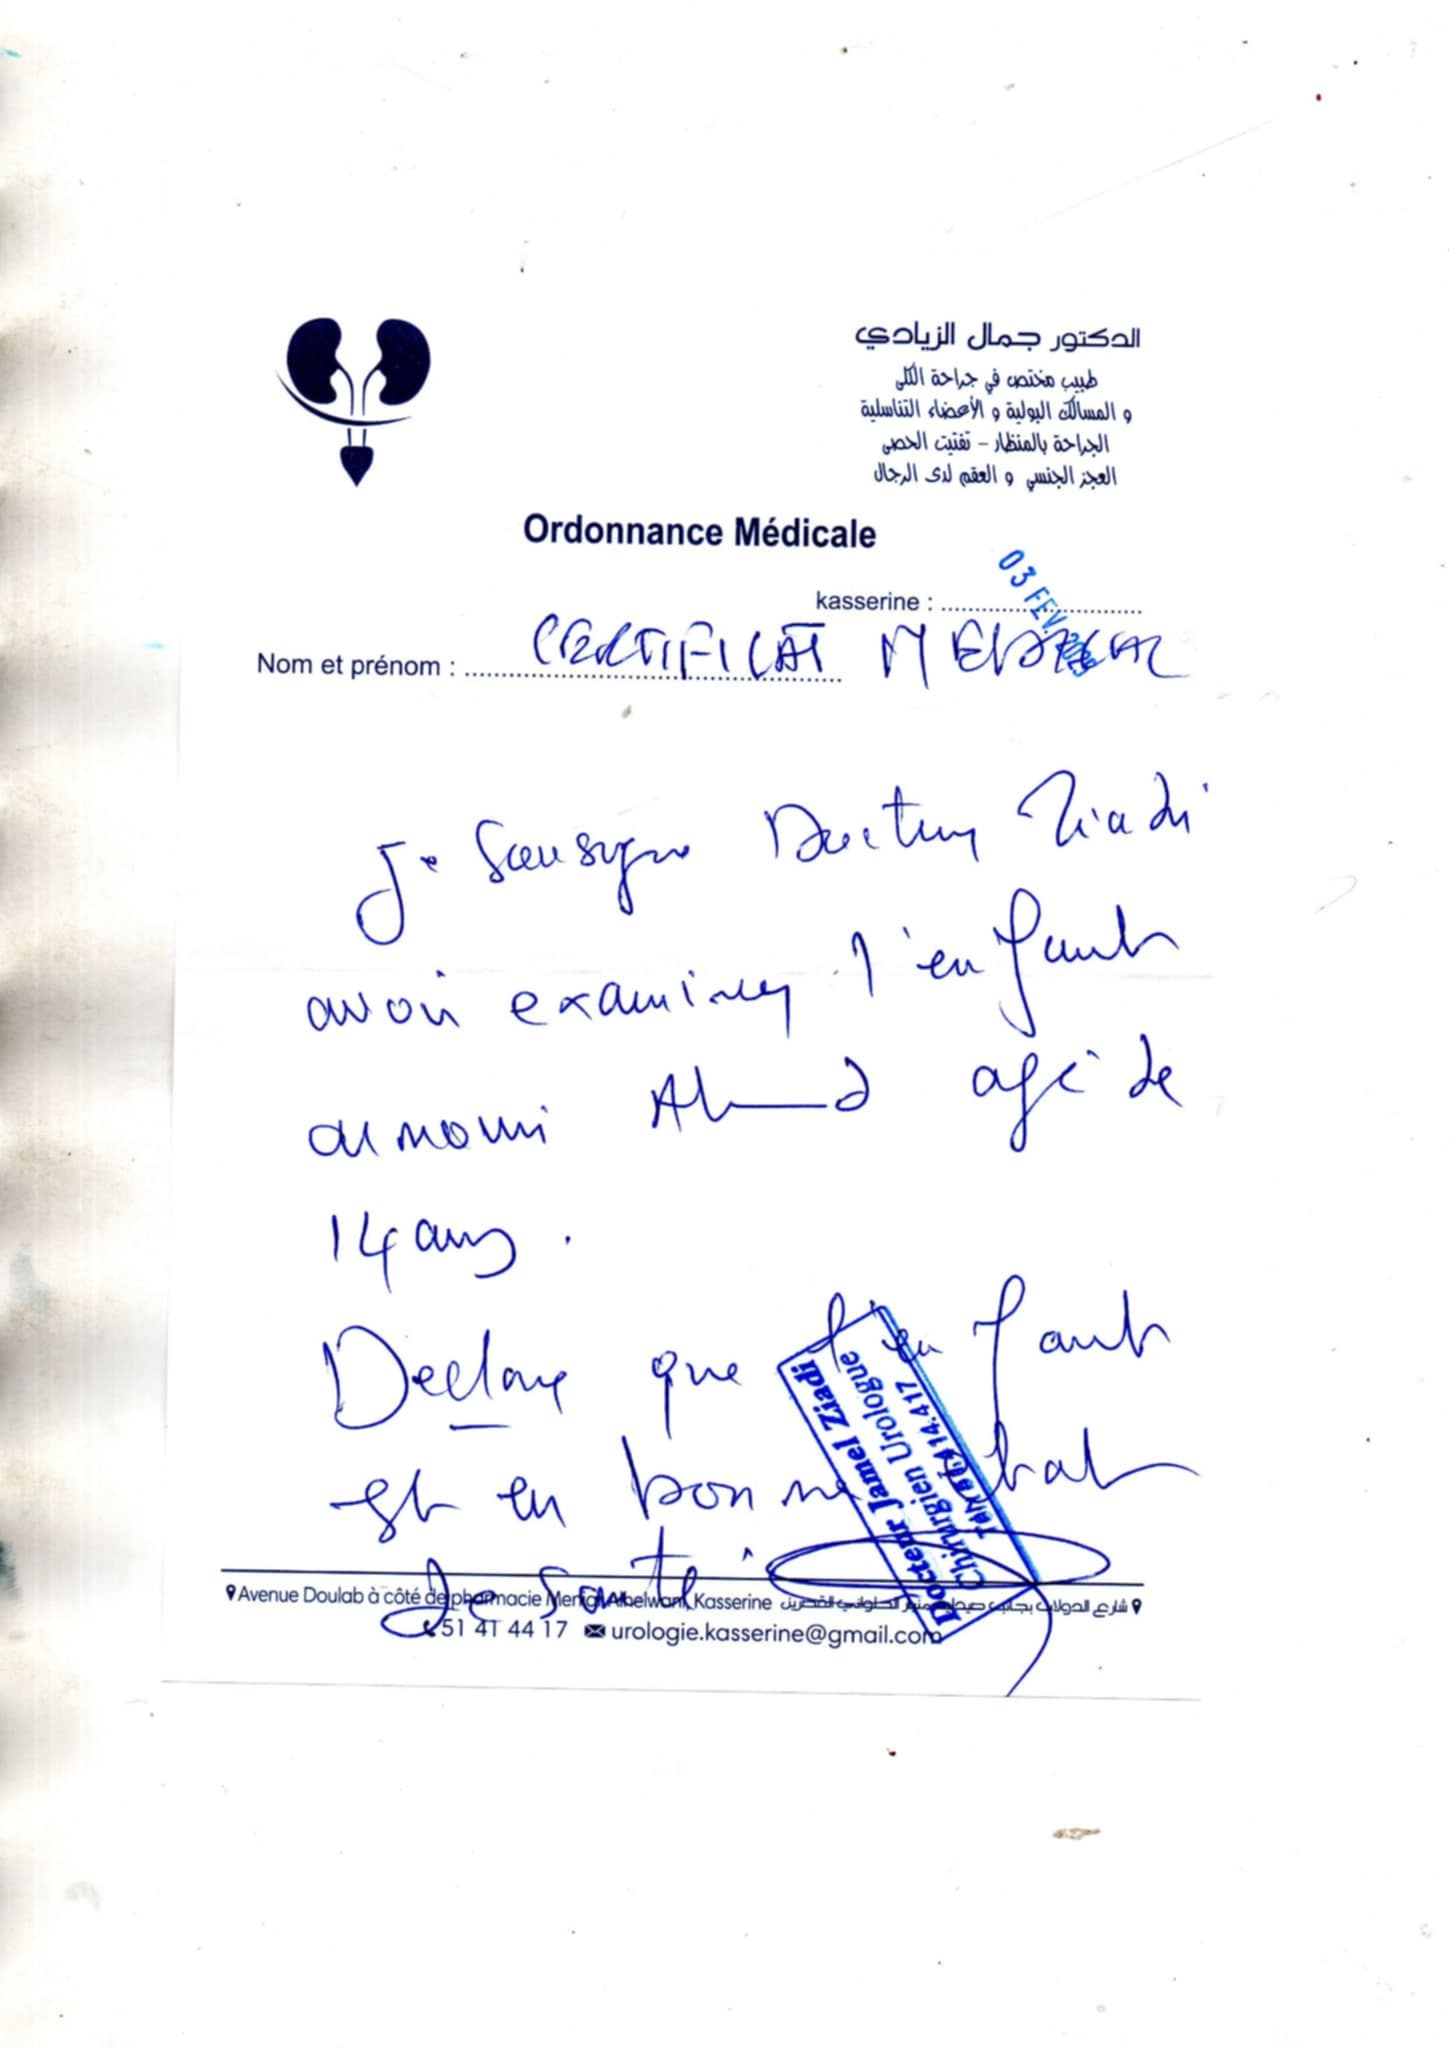 الدكتور جمال الزيادي
طبيب مختص في جراحة الكلى
و المسالك البولية و الأعضاء التناسلية
الجراحة بالمنظار - تفتيت الحصى
العجز الجنسي و العقم لدى الرجال
Ordonnance Médicale
kasserine : 03 FEV.
Nom et prénom : CERTIFICAT MEDICAL
Je Soussigne Docteur Ziadi
avoir examiner l'enfant
Ahmed agé de
14 ans.
Declare que l'enfant
est en bonne etat
de santé
Docteur Jamel Ziadi
Chirurgien Urologue
14.417
Avenue Doulab à côté de pharmacie Kasserine شارع الدولاب بجانب القصرين
51 41 44 17 urologie.kasserine@gmail.com